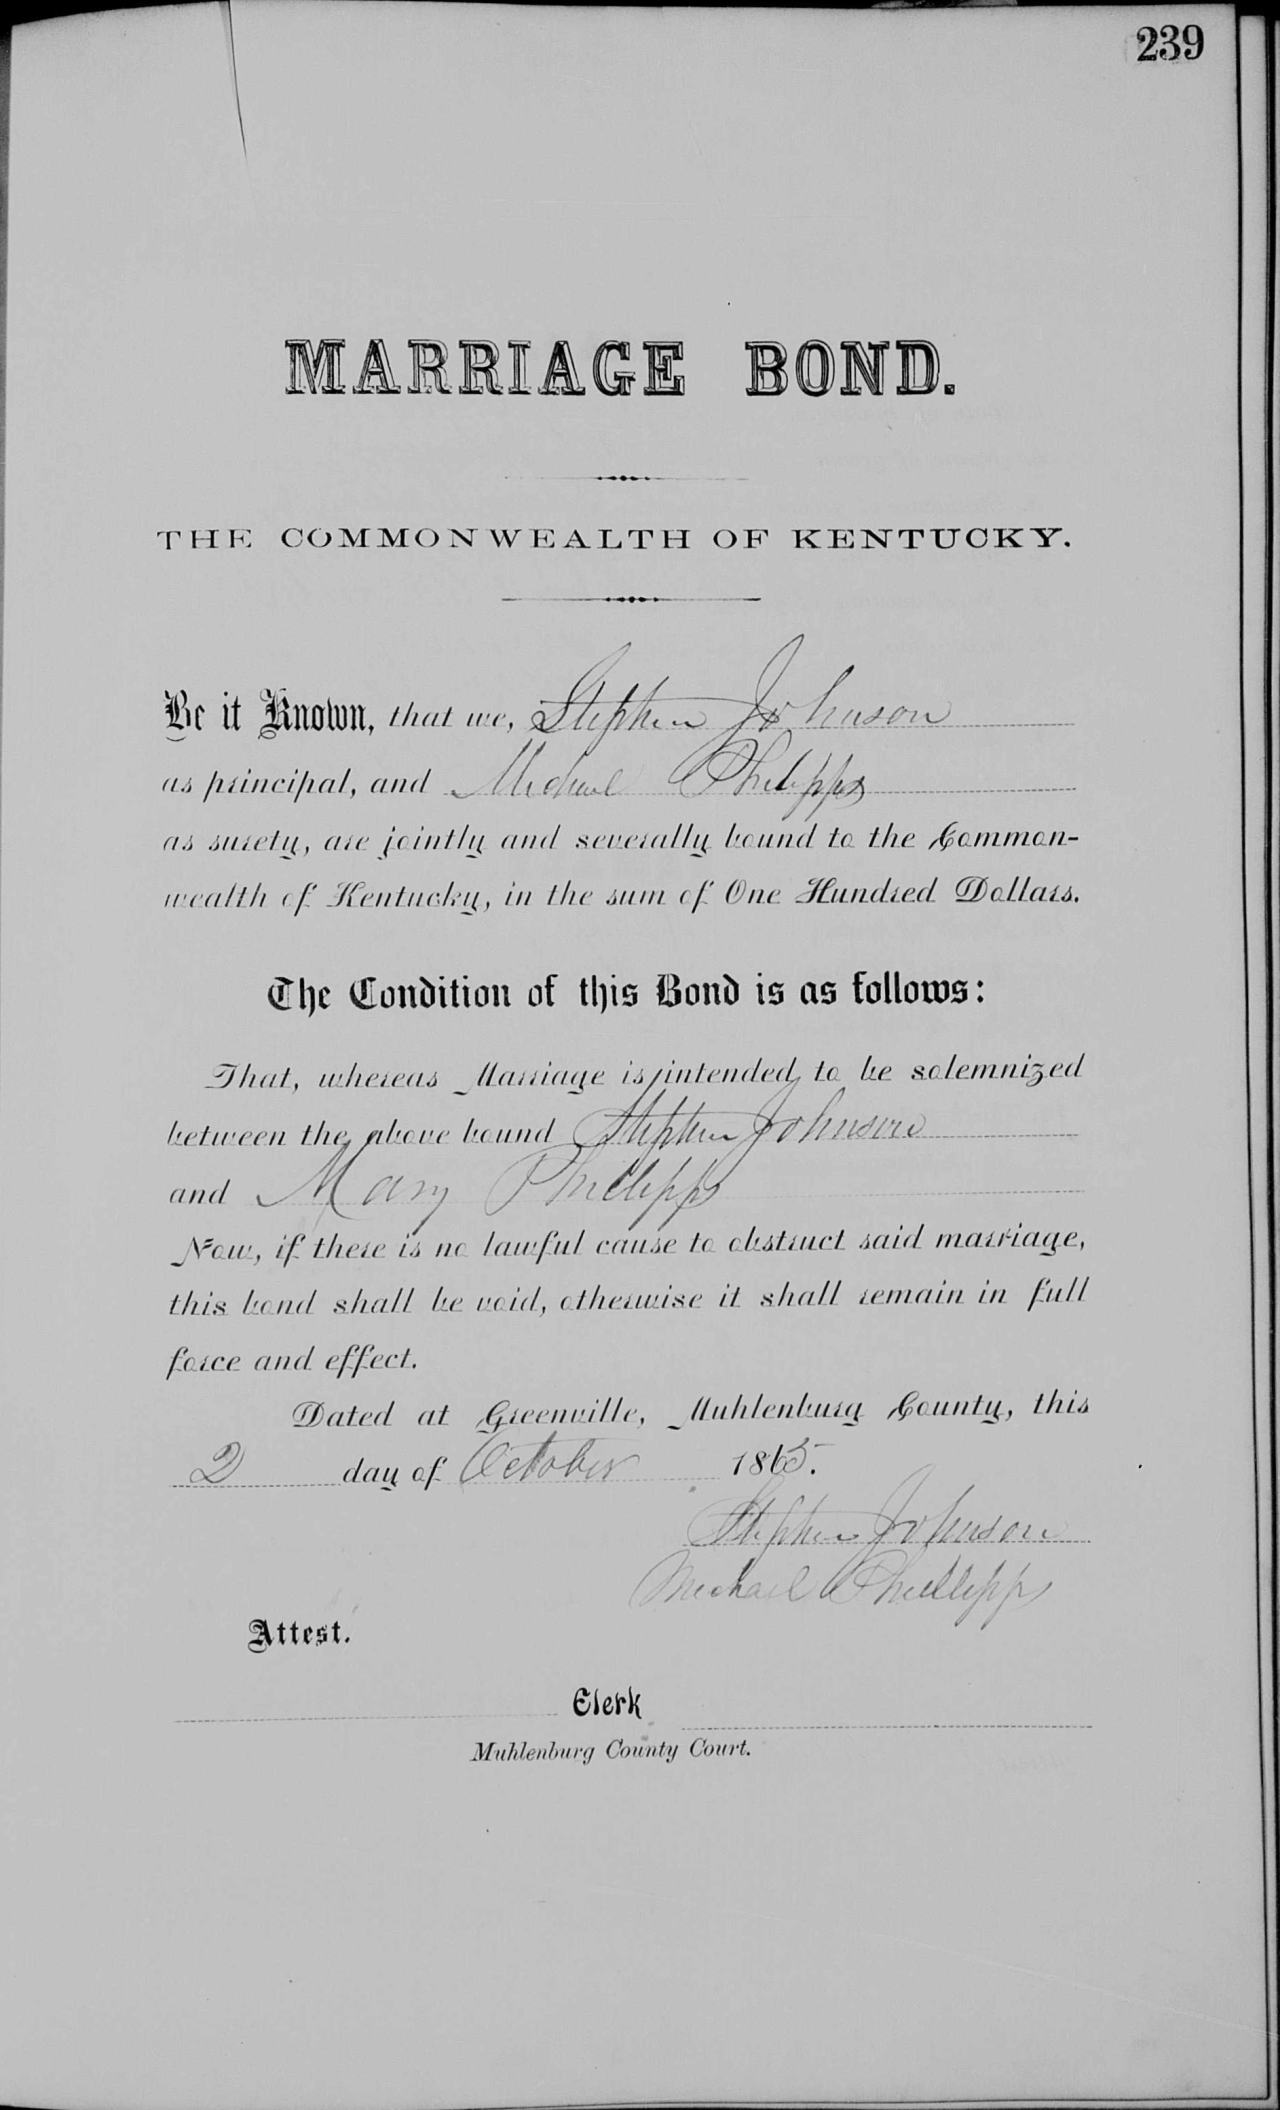 239
MARRIAGE BOND.
THE COMMONWEALTH OF KENTUCKY.
Be it Known, that we, Stephen Johnson
as principal, and Michael Philipps
as surety, are jointly and severally bound to the Common-
wealth of Kentucky, in the sum of One Hundred Dollars.
The Condition of this Bond is as follows:
That, whereas Marriage is intended to be solemnized
between the above bound Stephen Johnson
and Mary Phillipps
Now, if there is no lawful cause to obstruct said marriage,
this bond shall be void, otherwise it shall remain in full
force and effect.
Dated at Greenville, Muhlenburg County, this
2 day of October 1865.
Stephen Johnson
Michael Phillipps
Attest.
Clerk
Muhlenburg County Court.